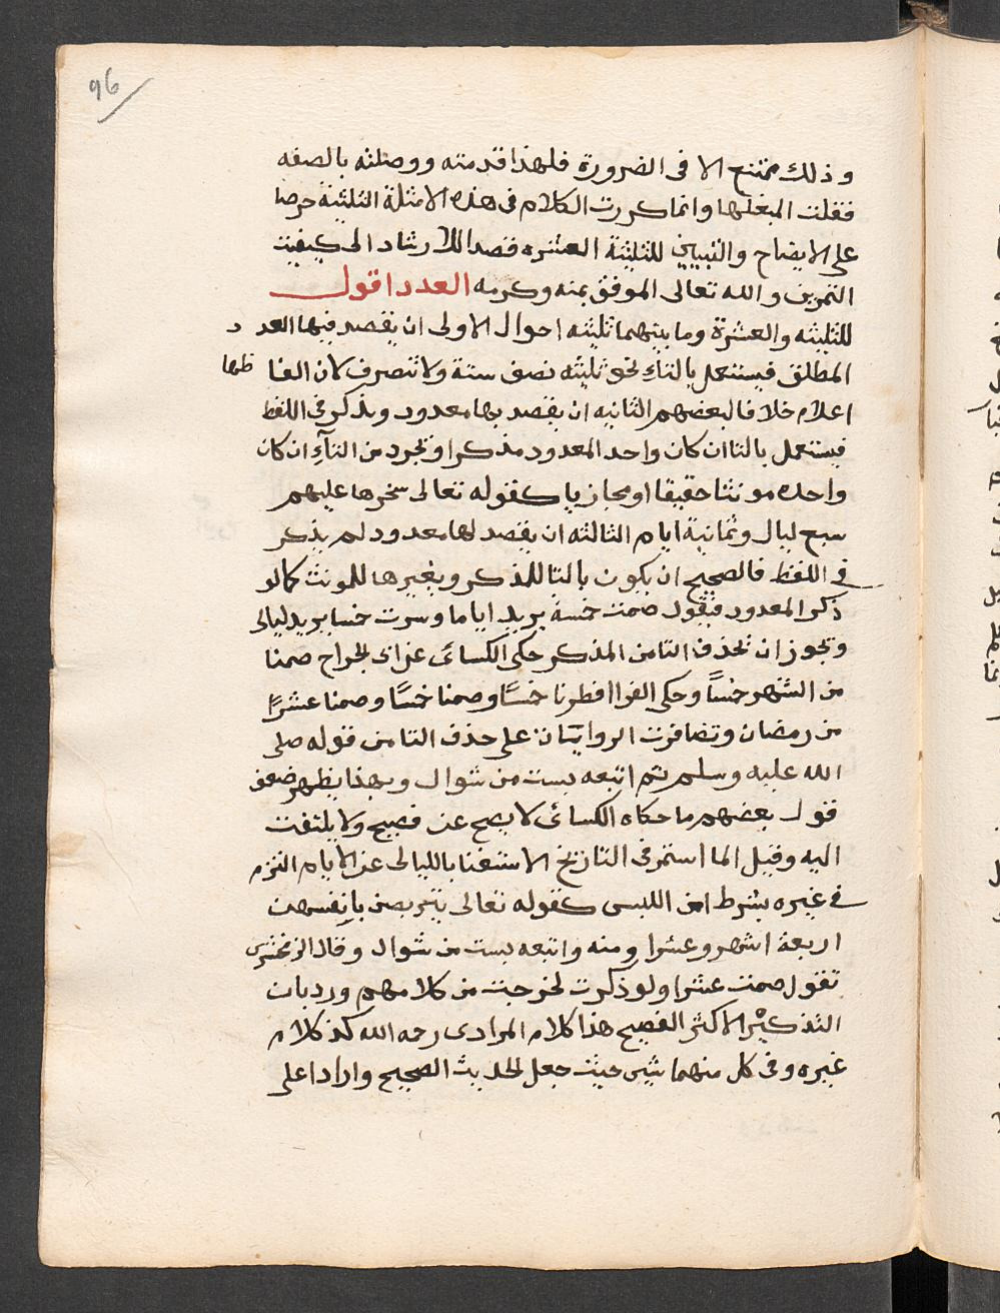 96
وذلك ممتنع الا فى الضرورة فلهذا قدمته ووصلته بالصفه
فقلت المبغلها وانما كررت الكلام فى هذه الامثلة الثلثية حرصا
على الايضاح والتبيين للثلثة العشره قصدا للارشاد الى كيفيت
التمرين والله تعالى الموفق بمنه وكرمه العدد اقول
للثلثه والعشرة وما بينهما ثلثه احوال الاولى ان يقصد فيها العدد
المطلق فيستعمل بالتاء نحو ثلثه نصف ستة ولا تنصرف لان الفاظها
اعلام خلافا لبعضهم الثانيه ان يقصد بها معدود ويذكر فى اللفظ
فيستعمل بالتا ان كان واحد المعدود مذكرا وتجرد من التآء ان كان
واحده مونثا حقيقا او مجازيا كقوله تعالى سخرها عليهم
سبع ليال وثمانية ايام الثالثه ان يقصد لها معدود لم يذكر
فى اللفظ فالصحيح ان يكون بالتا للمذكر وبغيرها للمونث كما لو
ذكر المعدود فيقول صمت خمسة يريد اياما وسرت خمسا يريد ليالى
وتجوز ان تحذف التا من المذكر حكى الكسائى عن ابى الجراح صمنا
من الشهر خمساً وحكى الفرا افطرنا خمسًا وصمنا خمسًا وصمنا عشرًا
من رمضان وتضافرت الروايتان على حذف التا من قوله صلى
الله عليه وسلم ثم اتبعه بست من شوال وبهذا يظهر ضعف
قول بعضهم ما حكاه الكسائى لا يصح عن فصيح ولا يلتفت
اليه وقيل الما استمر فى التاريخ الاستغنا بالليالى عن الايام التزم
فى غيره بشرط امن اللبس كقوله تعالى يتربصن بانفسهن
اربعة اشهر وعشرا ومنه واتبعه بست من شوال وقال الزمخشرى
تقول صمت عشرا ولو ذكرت لخرجت من كلامهم ورد بان
التذكير الاكثر الفصيح هذا كلام المرادى رحمه الله كذ كلام
غيره وفى كل منهما شيى حيث جعل الحديث الصحيح وارادا على